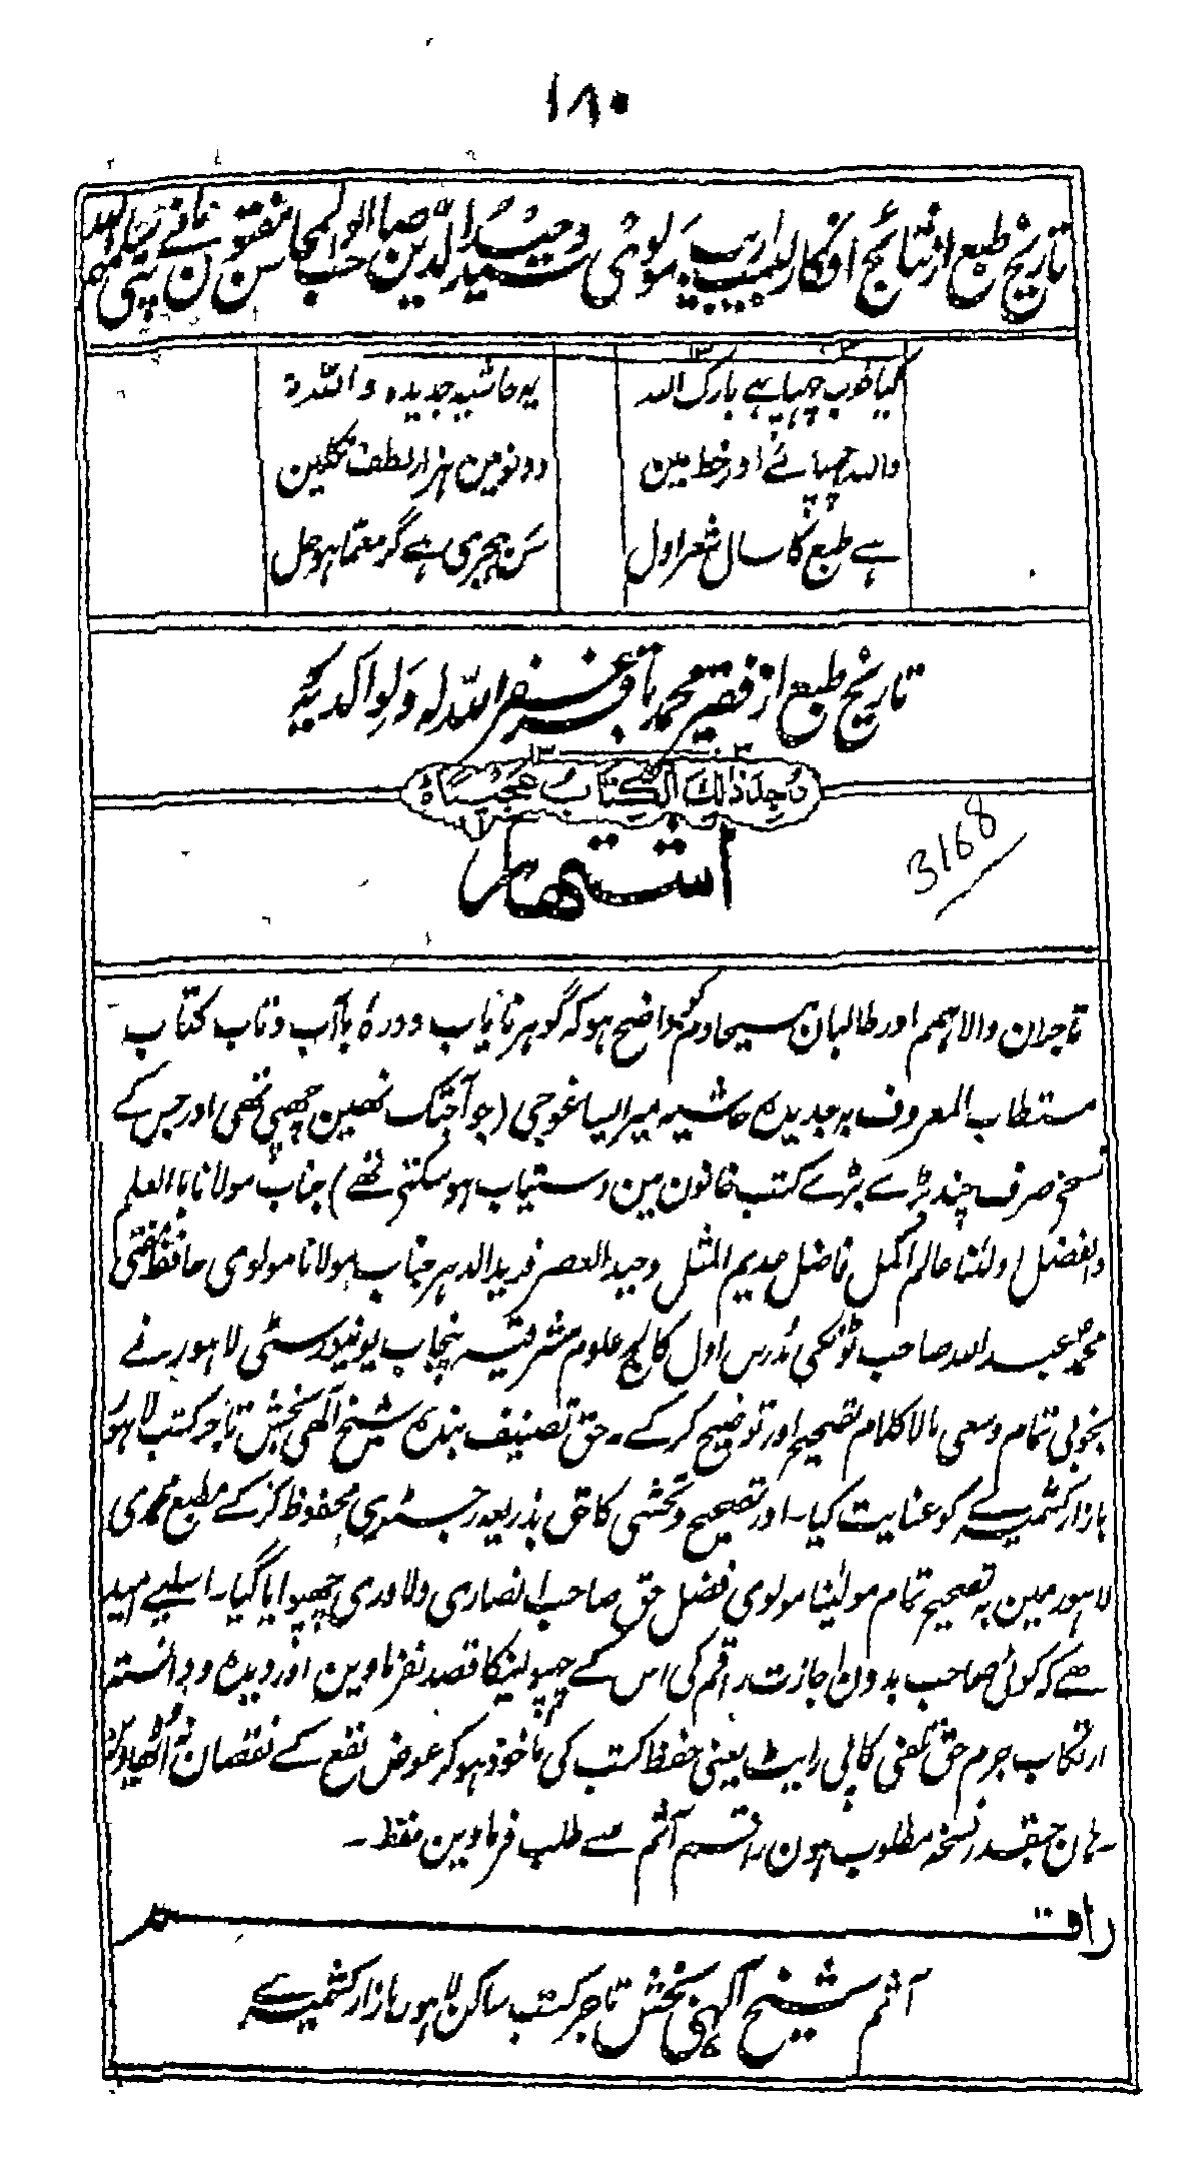 ۱۸۰
تاریخ طبع از نتائج افکار لبیب اریب مولوی سید وحیدالدین صاحب ابو المحاسن مفتون
کیا خوب چھپا ہے بارک اللہ
یہ حاشیہ جدیدہ واللہ
واللہ چھپائے اور خط مین
دونومین ہزار لطف نکلین
ہے طبع کا سال شعر اول
سَن ہجری ہے گر معمّا ہو حل
تاریخ طبع از فقیر محمد باقر غفر اللہ لہ ولوالدیہ
ذلک الکتاب
اشتہار
3168
تاجران والا ہمم اور طالبان مسیحا دم کو واضح ہو کہ گوہر نایاب و درۂ باآب و تاب کتاب
مستطاب المعروف بہ جدیدہ حاشیہ میر ایساغوجی (جو آجتک نھین چھپی تھی اور جس کے
نسخے صرف چند بڑے بڑے کتب خانون مین دستیاب ہو سکتی تھے) جناب مولانا بالعلم
والفضل اولٰنا عالم اکمل فاضل عدیم المثل وحید العصر فرید الدہر جناب مولانا مولوی حافظ مفتی
محمد عبد اللہ صاحب ٹونکی مدرس اول کالج علوم مشرقیہ پنجاب یونیورسٹی لاہور نے
بخوبی تمام و سعی مالا کلام تصحیح اور توضیح کر کے ۔ حق تصنیف بندہ شیخ الٰہی بخش تاجر کتب لاہور
بازار کشمیرے کو عنایت کیا ۔ اور تصحیح و تحشی کا حق بذریعہ رجسٹری محفوظ کر کے مطبع محمدی
لاہور مین بہ تصحیح تمام مولٰینا مولوی فضل حق صاحب انصاری دلاوری چھپوایا گیا ۔ اسلیے امید
ھے کہ کوئی صاحب بدون اجازت راقم کی اس کے چھپولینکا قصد نفرماوین اور دیدہ و دانستہ
ارتکاب جرم حق تلفی کاپی رایٹ یعنی حفظ کتب کی ماخوذ ہو کر عوض نفع کے نقصان نہ اُٹھاوین
۔ ہان جسقدر نسخہ مطلوب ہون راقم آثم سے طلب فرماوین فقط ۔
راقم
آثم شیخ الٰہی بخش تاجر کتب ساکن لاہور بازار کشمیرے